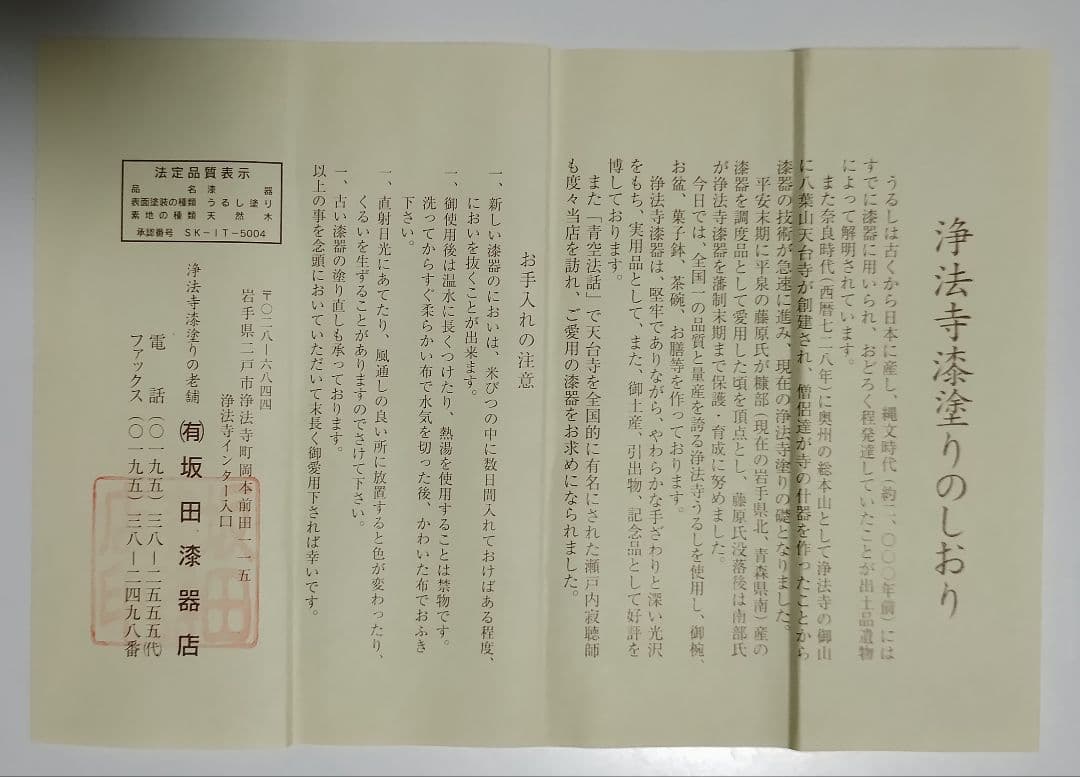 浄法寺漆塗りのしおり
うるしは古くから日本に産し、縄文時代(約二、〇〇〇年前)には
すでに漆器に用いられ、おどろく程発達していたことが出土品遺物
によって解明されています。
また奈良時代(西暦七二八年)に奥州の総本山として浄法寺の御山
に八葉山天台寺が創建され、僧侶達が寺の什器を作ったことから
漆器の技術が急速に進み、現在の浄法寺塗りの礎となりました。
平安末期に平泉の藤原氏が糠部(現在の岩手県北、青森県南)産の
漆器を調度品として愛用した頃を頂点とし、藤原氏没落後は南部氏
が浄法寺漆器を藩制末期まで保護・育成に努めました。
今日では、全国一の品質と量産を誇る浄法寺うるしを使用し、御椀、
お盆、菓子鉢、茶碗、お膳等を作っております。
浄法寺漆器は、堅牢でありながら、やわらかな手ざわりと深い光沢
をもち、実用品として、また、御土産、引出物、記念品として好評を
博しております。
また「青空法話」で天台寺を全国的に有名にされた瀬戸内寂聴師
も度々当店を訪れ、ご愛用の漆器をお求めになられました。
お手入れの注意
一、新しい漆器のにおいは、米びつの中に数日間入れておけばある程度、
においを抜くことが出来ます。
一、御使用後は温水に長くつけたり、熱湯を使用することは禁物です。
洗ってからすぐ柔らかい布で水気を切った後、かわいた布でおふき
下さい。
一、直射日光にあてたり、風通しの良い所に放置すると色が変わったり、
くるいを生ずることがありますのでさけて下さい。
一、古い漆器の塗り直しも承っております。
以上の事を念頭においていただいて末長く御愛用下されば幸いです。
法定品質表示
品名 漆器
表面塗装の種類 うるし塗り
素地の種類 天然木
承認番号 SK-IT-5004
〒〇二八―六八四四
岩手県二戸市浄法寺町岡本前田一一五
浄法寺インター入口
浄法寺漆塗りの老舗 ㈲坂田漆器店
電話(〇一九五)三八―二五五五(代)
ファックス(〇一九五)三八―二四九八番